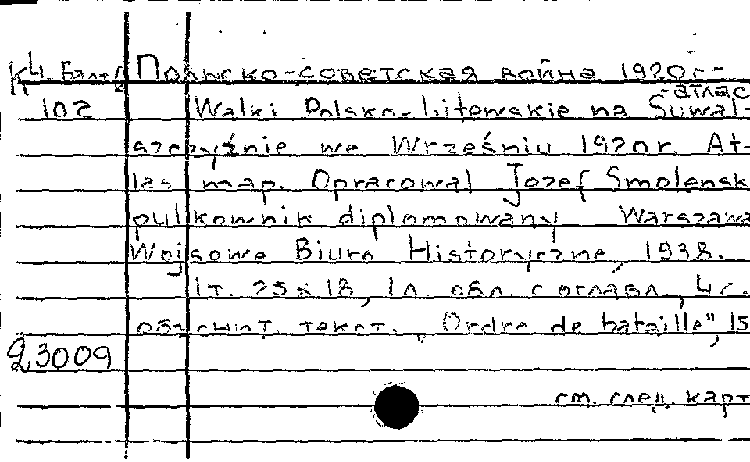 Польско-советская война 1920г.-
102 атлас
Walki Polsko-Litewskie na Suwal-
szczyźnie we Wrześniu 1920r. At-
las map. Opracował Józef Smoleńsk
pułkownik diplomowany Warszawa
Wojsowe Biuro Historyczne, 1938.
1т. 25х18, 1л обл. с оглавл., 4с.
объяснит. текст. „Ordre de bataille", 15
93009
см. след. карт